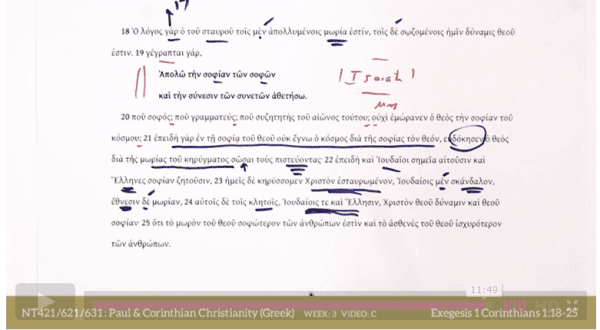 17
18 Ὁ λόγος γὰρ ὁ τοῦ σταυροῦ τοῖς μὲν ἀπολλυμένοις μωρία ἐστίν, τοῖς δὲ σῳζομένοις ἡμῖν δύναμις θεοῦ
ἐστιν. 19 γέγραπται γάρ,
Ἀπολῶ τὴν σοφίαν τῶν σοφῶν
Isaiah
καὶ τὴν σύνεσιν τῶν συνετῶν ἀθετήσω.
20 ποῦ σοφός; ποῦ γραμματεύς; ποῦ συζητητὴς τοῦ αἰῶνος τούτου; οὐχὶ ἐμώρανεν ὁ θεὸς τὴν σοφίαν τοῦ
κόσμου; 21 ἐπειδὴ γὰρ ἐν τῇ σοφίᾳ τοῦ θεοῦ οὐκ ἔγνω ὁ κόσμος διὰ τῆς σοφίας τὸν θεόν, εὐδόκησεν ὁ θεὸς
διὰ τῆς μωρίας τοῦ κηρύγματος σῶσαι τοὺς πιστεύοντας· 22 ἐπειδὴ καὶ Ἰουδαῖοι σημεῖα αἰτοῦσιν καὶ
Ἕλληνες σοφίαν ζητοῦσιν, 23 ἡμεῖς δὲ κηρύσσομεν Χριστὸν ἐσταυρωμένον, Ἰουδαίοις μὲν σκάνδαλον,
ἔθνεσιν δὲ μωρίαν, 24 αὐτοῖς δὲ τοῖς κλητοῖς, Ἰουδαίοις τε καὶ Ἕλλησιν, Χριστὸν θεοῦ δύναμιν καὶ θεοῦ
σοφίαν· 25 ὅτι τὸ μωρὸν τοῦ θεοῦ σοφώτερον τῶν ἀνθρώπων ἐστὶν καὶ τὸ ἀσθενὲς τοῦ θεοῦ ἰσχυρότερον
τῶν ἀνθρώπων.
11:49
NT421/621/631: Paul & Corinthian Christianity (Greek) WEEK: 3 VIDEO: C Exegesis 1 Corinthians 1:18-25